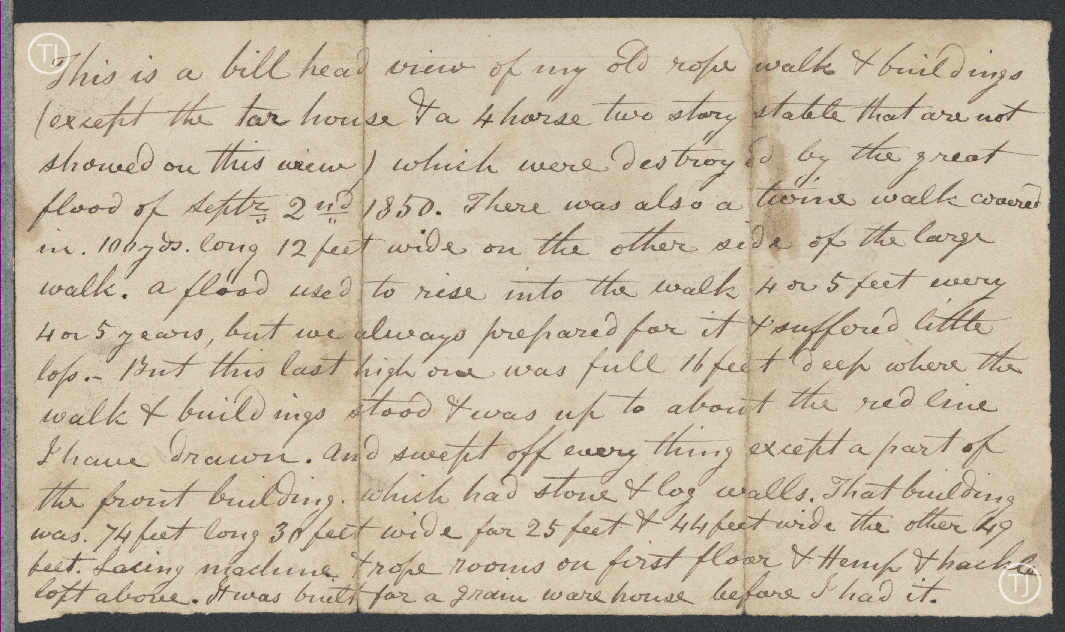 TJ
This is a bill head view of my old rope walk & buildings
(except the tar house & a 4 horse two story stable that are not
showed on this view) which were destroyed by the great
flood of Septr. 2nd 1850. There was also a twine walk covered
in. 100 yds. long 12 feet wide on the other side of the large
walk. a flood used to rise into the walk 4 or 5 feet every
4 or 5 years, but we always prepared for it & suffered little
loss.- But this last high one was full 16 feet deep where the
walk & buildings stood & was up to about the red line
I have drawn. And swept off every thing except a part of
the front building. which had stone & log walls. That building
was. 74 feet long 30 feet wide for 25 feet & 44 feet wide the other 49
feet. Laeing machine & rope rooms on first floor & Hemp & hackle
loft above. It was built for a grain ware house before I had it.
TJ